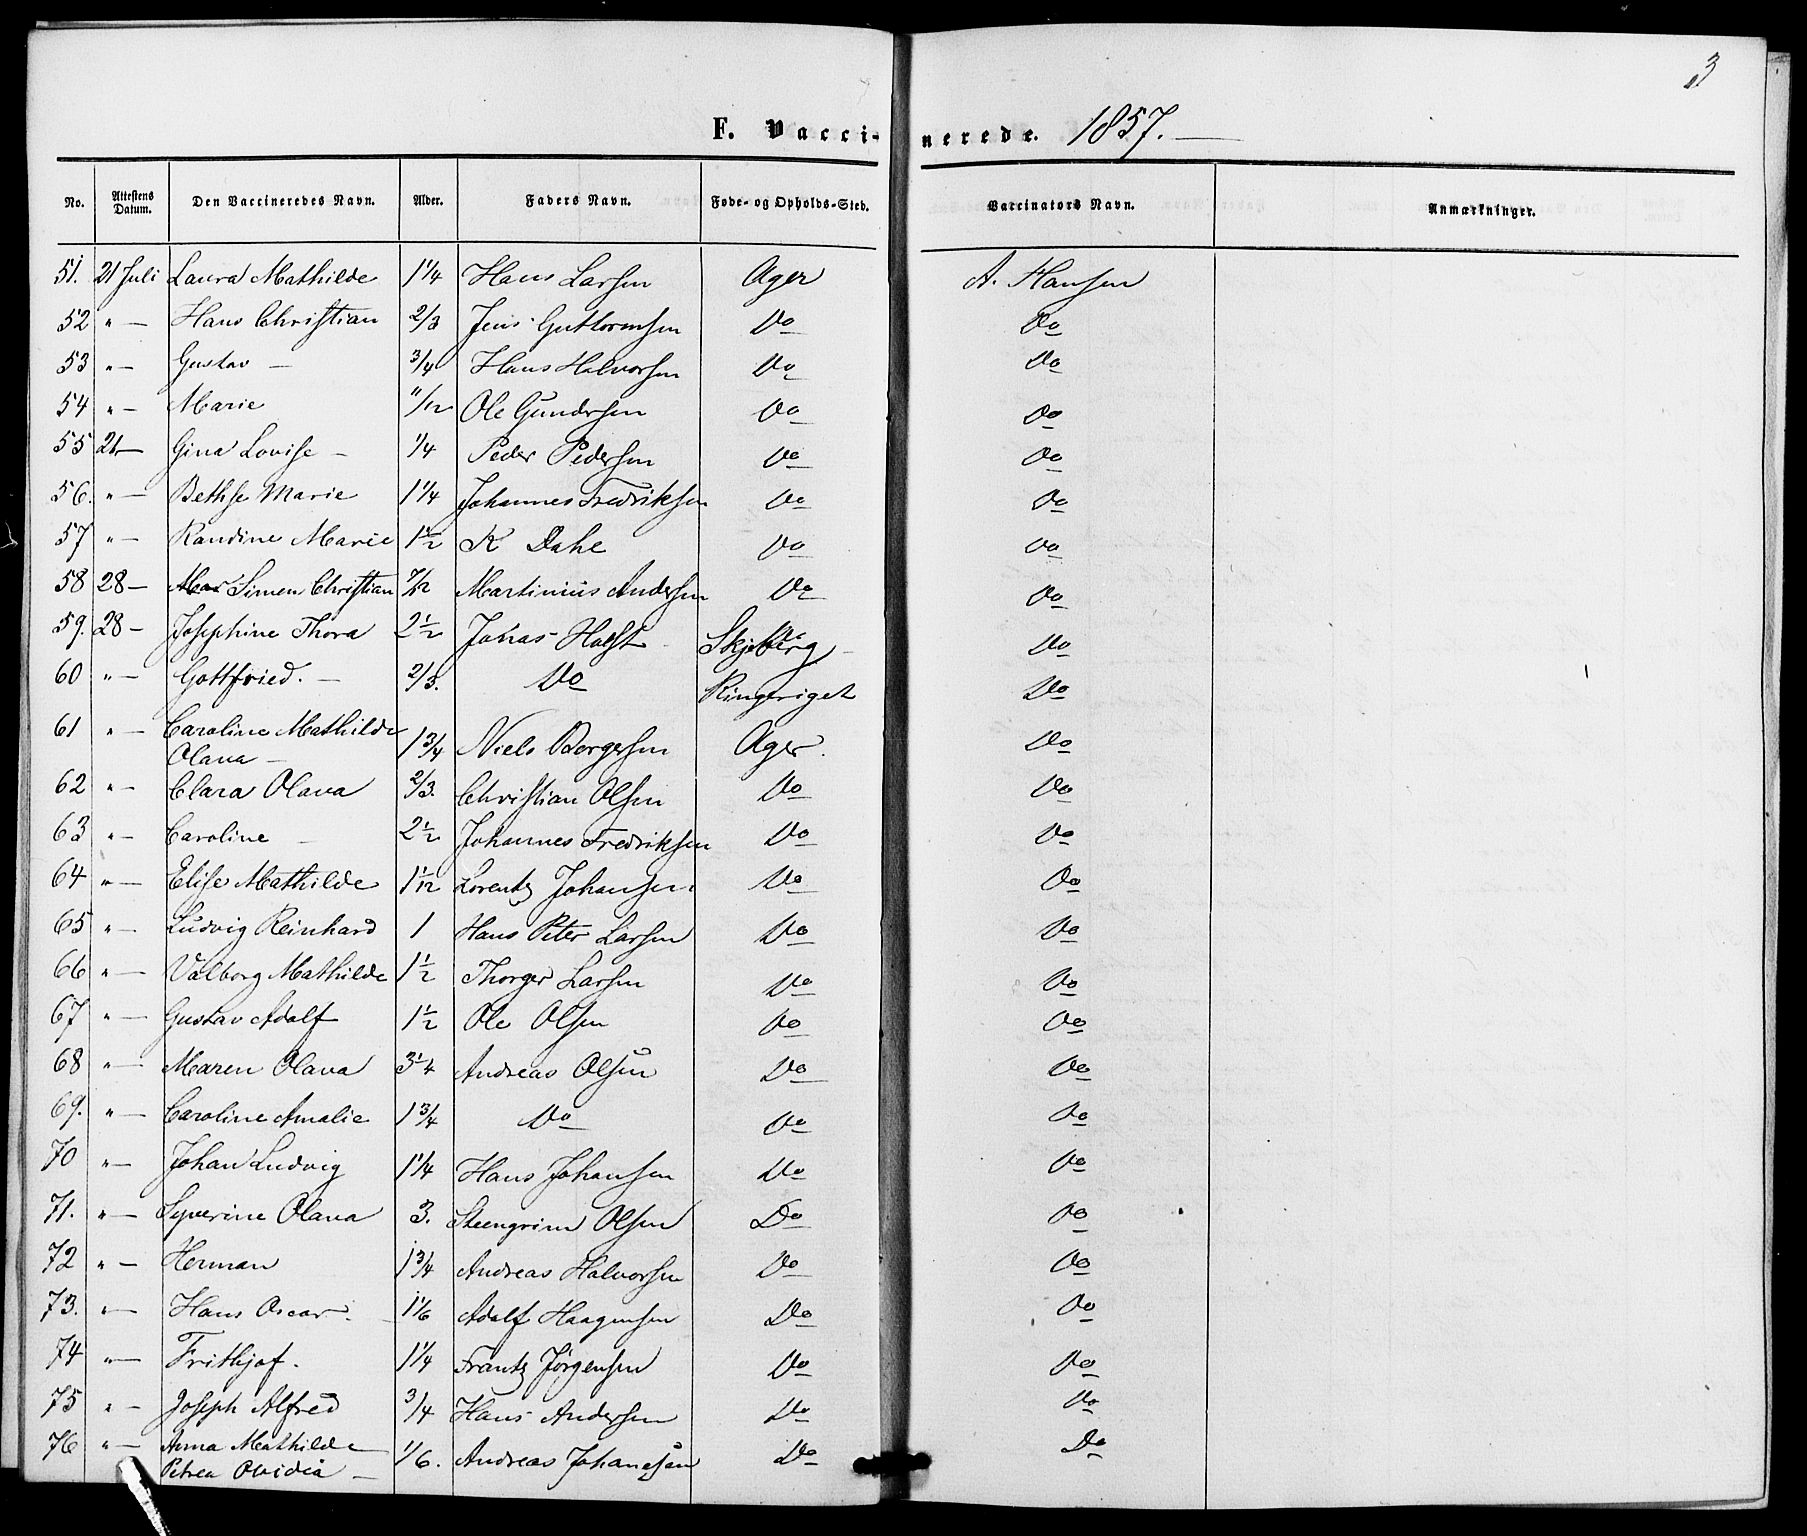 3
F. Vaccinerede. 1857.
No. Attestens Datum. Den Vaccineredes Navn. Alder. Faders Navn. Føde- og Opholds-Sted. Vaccinators Navn. Anmærkninger.
51. 21 Juli Laura Mathilde 1 1/4 Hans Larsen Ager A. Hansen
52 " — Hans Christian 2/3 Jens Guttormsen Do Do
53 " — Gustav — 3/4 Hans Halvorsen Do Do
54 " — Marie 11/12 Ole Gundersen Do Do
55 21 — Gina Lovise — 1/4 Peder Pedersen Do Do
56. " — Bethse Marie 1 1/4 Johannes Fredriksen Do Do
57 " — Randine Marie 1 1/2 K Dahe Do Do
58 28 — Simen Christian 7/12 Martinius Andersen Do Do
59. 28 — Josephine Thora 2 1/2 Jonas Holst Skjeberg Do
60 " — Gottfried. — 2/3. Do Ringeriget Do
61 " — Caroline Mathilde
Olava — 1 3/4 Niels Borgersen Ager. Do
62 " — Clara Olava 2/3. Christian Olsen Do Do
63 " — Caroline — 2 1/2 Johannes Fredriksen Do Do
64 " — Elise Mathilde 1 1/12 Lorentz Johansen. Do Do
65 " — Ludvig Reinhard 1 Hans Peter Larsen Do Do
66 " — Valborg Mathilde 1 1/2 Thorger Larsen Do Do
67 " — Gustav Adolf 1 1/2 Ole Olsen Do Do
68 " — Maren Olava 3 1/4 Andreas Olsen Do Do
69. " — Caroline Amalie 1 3/4 Do Do Do
70 " — Johan Ludvig 1 1/4 Hans Johansen Do Do
71. " — Syverine Olava 3. Steengrim Olsen Do Do
72 " — Herman 1 3/4 Andreas Halvorsen Do Do
73. " — Hans Oscar. 1 1/6 Adolf Haagensen Do Do
74 " — Frithjof. 1 1/4 Frantz Jørgensen Do Do
75 " — Joseph Alfred 3/4 Hans Andersen Do Do
76 " — Anna Mathilde
Petrea Ovidia — 1/6. Andreas Johanesen Do Do